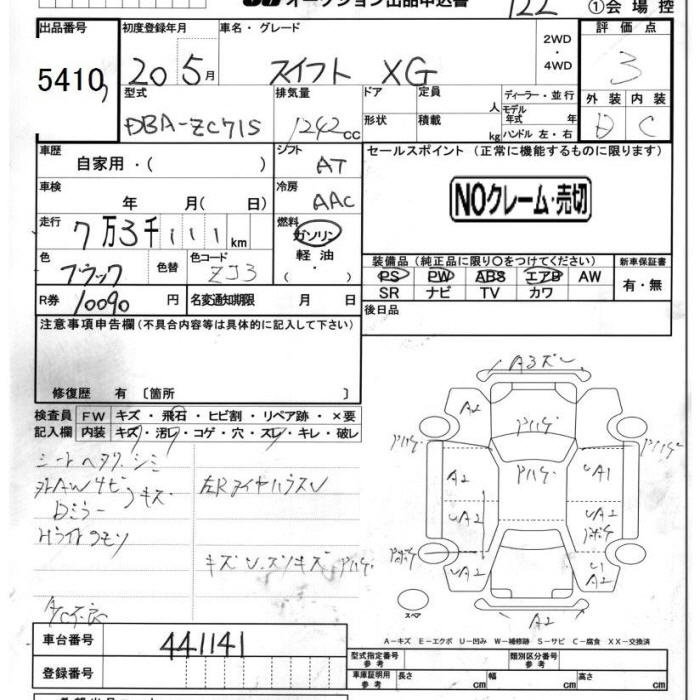 オークション出品申込書
122
①会場控
出品番号 初度登録年月 車名・グレード 評価点
5410 20 5月 スイフト XG 2WD ・ 4WD 3
型式 排気量 ドア 定員 人 ディーラー・並行 外装 内装
DBA-ZC71S 1242cc 形状 積載 kg モデル年式 年 ハンドル 左・右 D C
車歴 自家用・( ) シフト AT セールスポイント (正常に機能するものに限ります)
車検 年 月( 日) 冷房 AAC
NOクレーム・売切
走行 7万3千111km 燃料 ガソリン
軽油
・
( )
色 ブラック 色替 色コード ZJ3
装備品 (純正品に限り○をつけてください) 新車保証書
PS PW ABS エアB AW 有・無
SR ナビ TV カワ
R券 10090円 名変通知期限 月 日
後日品
注意事項申告欄(不具合内容等は具体的に記入して下さい)
修復歴 有 〔箇所 〕
検査員記入欄 FW キズ・飛石・ヒビ割・リペア跡・×要
内装 キズ・汚レ・コゲ・穴・スレ・キレ・破レ
シートヘタク、シミ
キズ
Dミラー
A/C不良
キズU
A3ズレ
A2
アハゲ
アハゲ
アハゲ
アハゲ
A2
UA1
UA2
UA2
アボケ
アボケ
UA2
A2
アハゲ
A2
スペア
A−キズ E−エクボ U−凹み W−補修跡 S−サビ C−腐食 XX−交換済
車台番号 441141
登録番号
型式指定番号 参考 類別区分番号 参考
車庫証明用 参考 長さ cm 幅 cm 高さ cm